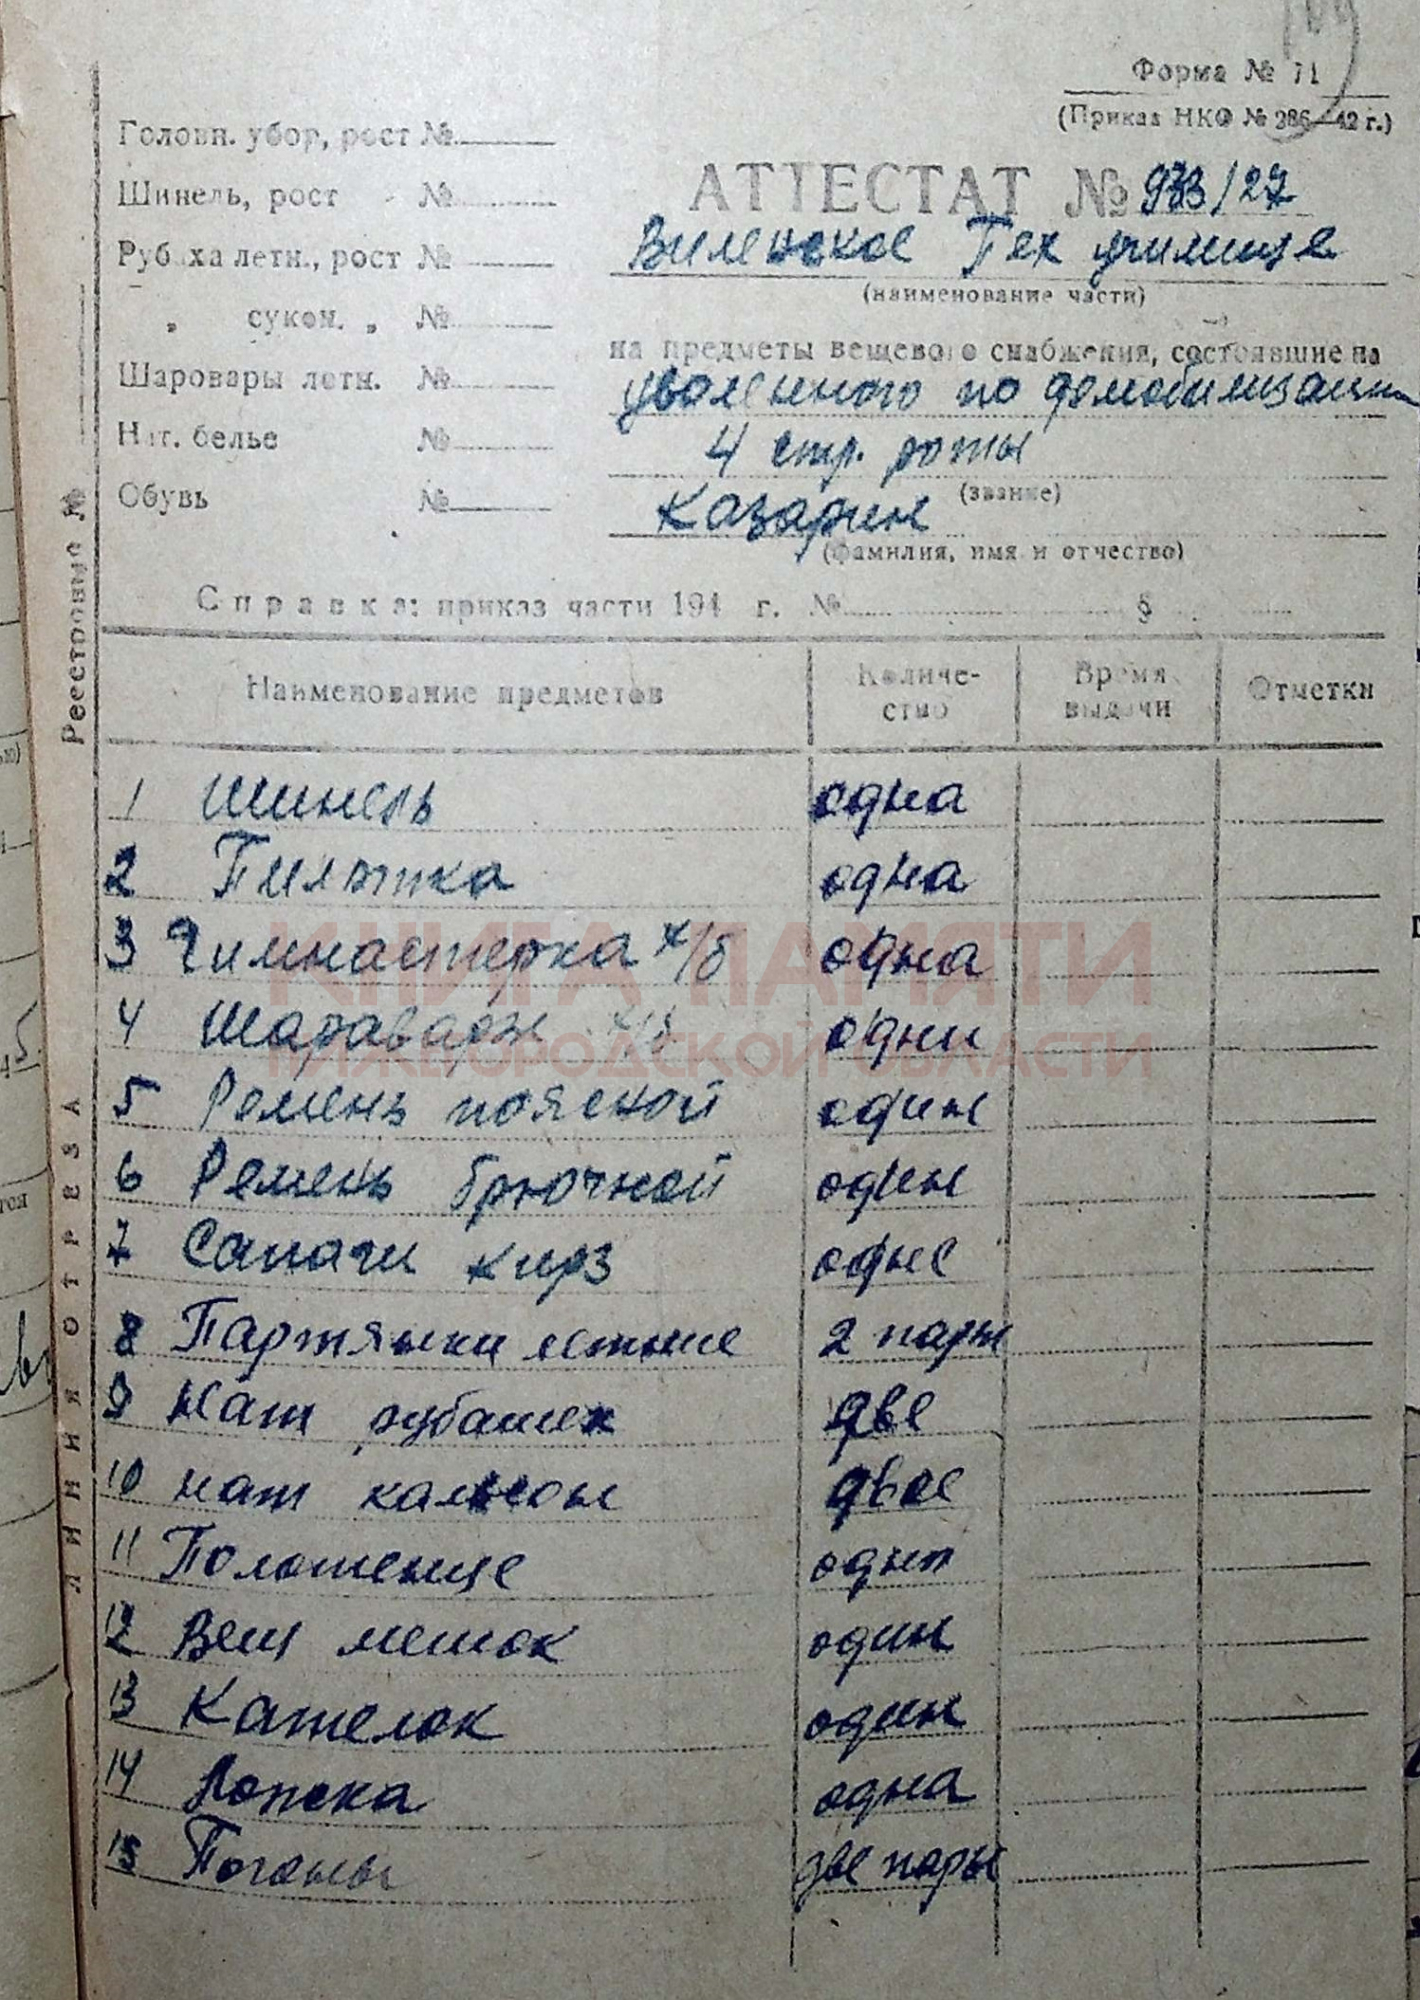 Форма № 71
(Приказ НКО № 286—42 г.)
Головн. убор, рост №
Шинель, рост №
Рубаха летн., рост №
„ сукон. „ №
Шаровары летн. №
Нат. белье №
Обувь №
АТТЕСТАТ № 933/27
Виленское Тех училище
(наименование части)
на предметы вещевого снабжения, состоявшие на
уволенного по демобилизации
4 стр. роты
(звание)
Казарин
(фамилия, имя и отчество)
Справка: приказ части 194 г. № §
Реестровый №
ЛИНИЯ ОТРЕЗА
Наименование предметов Количе-ство Время выдачи Отметки
1 Шинель одна
2 Пилотка одна
3 Гимнастерка х/б одна
4 Шаравары х/б одни
5 Ремень поясной один
6 Ремень брючной один
7 Сапаги кирз одне
8 Партянки летние 2 пары
9 Нат рубашек две
10 нат кальсоны двое
11 Полотенце одно
12 Вещ мешок один
13 Кателок один
14 Ложка одна
15 Погоны две пары
КНИГА ПАМЯТИ
НИЖЕГОРОДСКОЙ ОБЛАСТИ